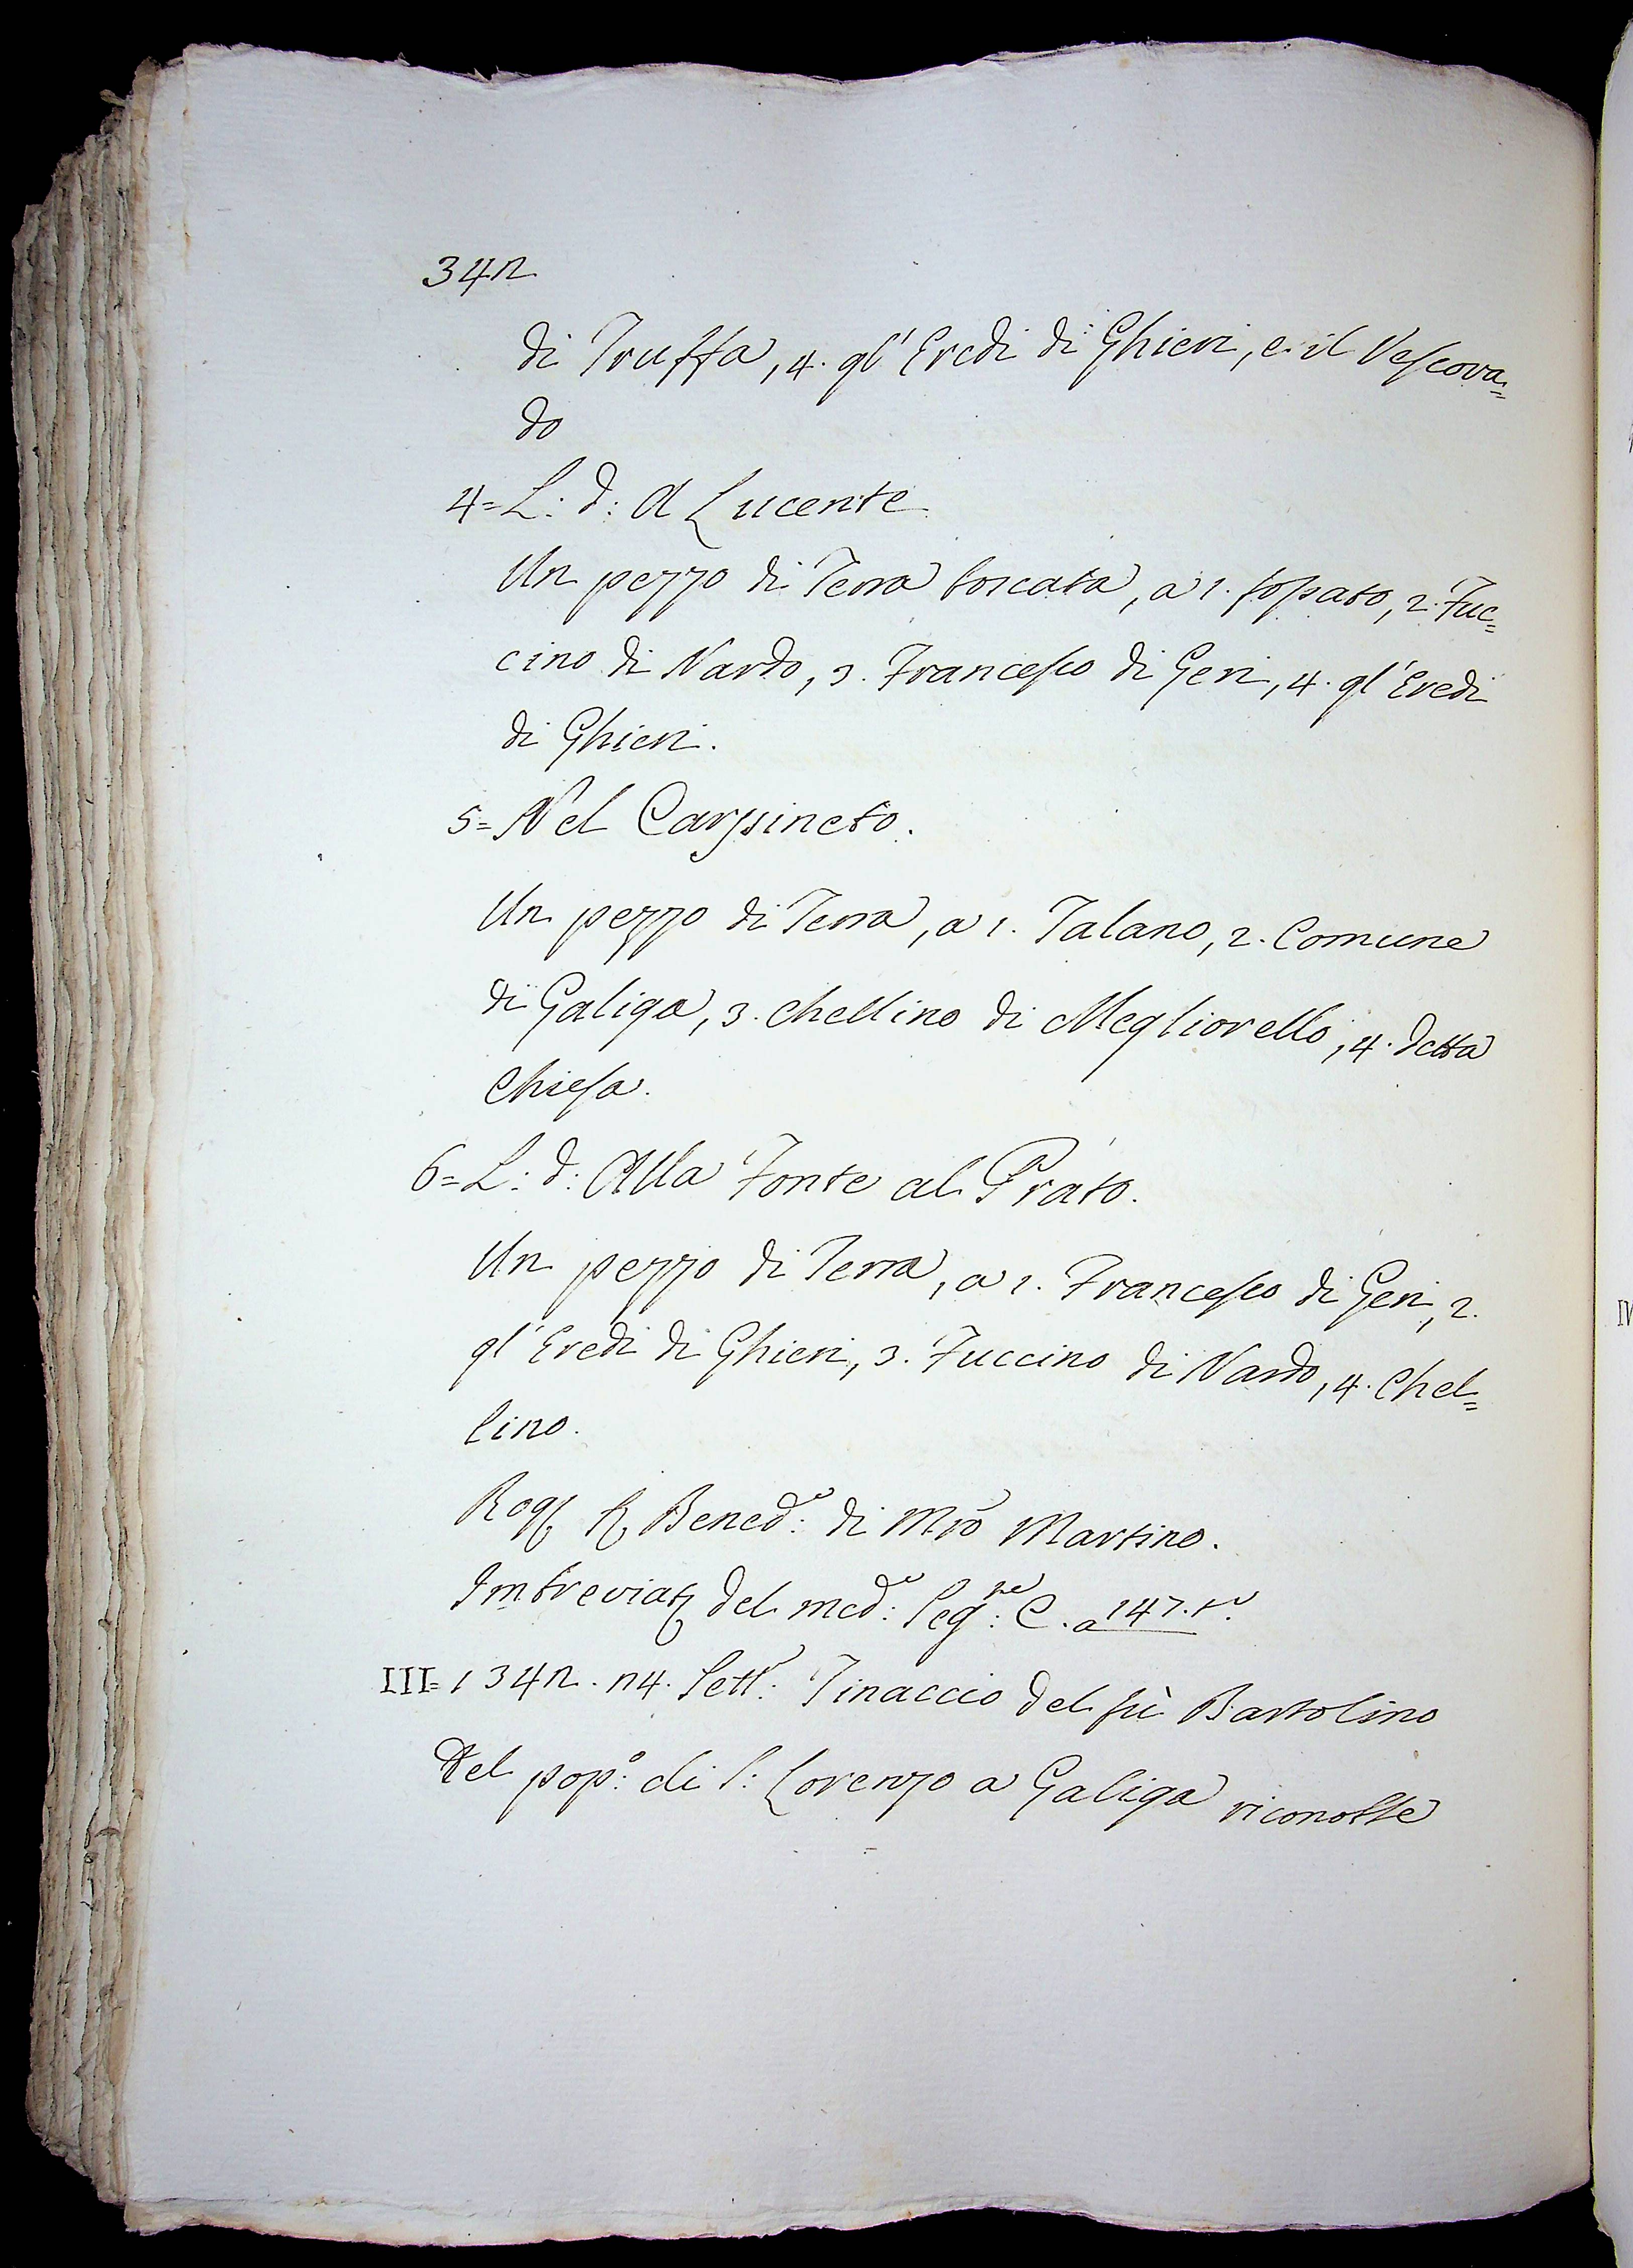 342
di Truffa, 4. gl' Eredi di Ghieri, e il Vescova=
do
4= L: d: A Lucente
Un pezzo di Terra boscata, a 1. fossato, 2. Fuc=
cino di Nardo, 3. Francesco di Geri, 4. gl' Eredi
di Ghieri.
5= Nel Carpineto.
Un pezzo di Terra, a 1. Talano, 2. Comune
di Galiga, 3. Chellino di Megliorello, 4. detta
Chiesa.
6= L: d: Alla Fonte al Prato.
Un pezzo di Terra, a 1. Francesco di Geri, 2.
gl' Eredi di Ghieri, 3. Fuccino di Nardo, 4. Chel=
lino.
Rog. Benedº: di Mrõ Martino.
Imbreviat. del medº: Segne: C. a 147. tº.
III= 1342. 24. Settº: Tinaccio del fù Bartolino
del popº: di S: Lorenzo a Galiga riconobbe